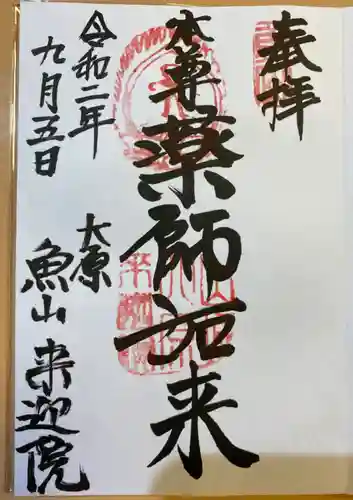 奉拝
本尊 薬師如来
令和二年
九月五日
大原
魚山 来迎院